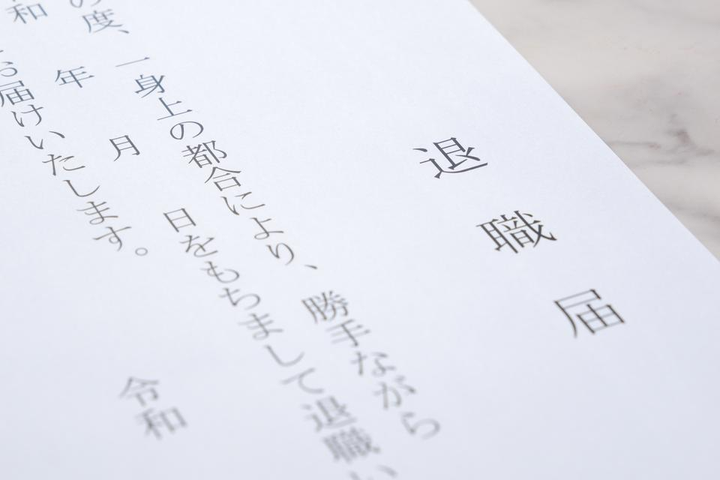 退職届
の度、一身上の都合により、勝手ながら
和　年　月　日をもちまして退職い
お届けいたします。
令和